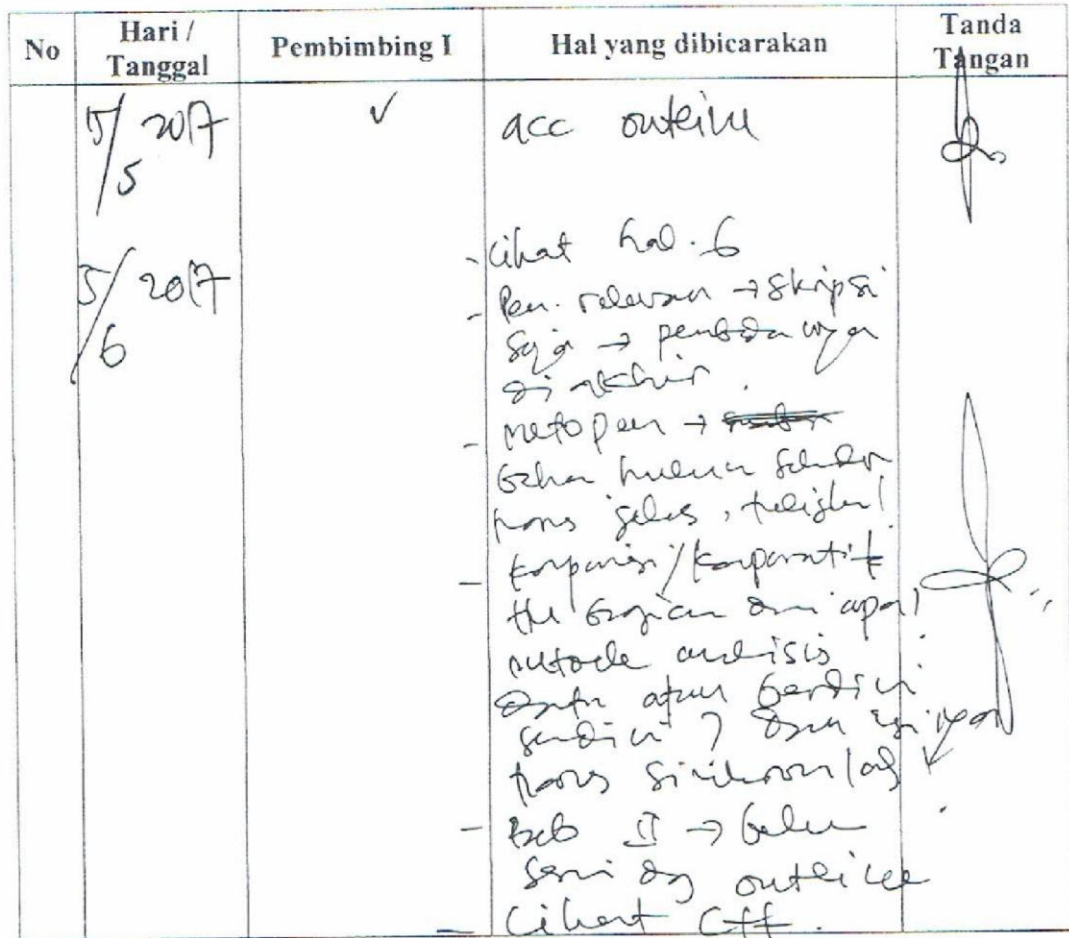 No
Hari / Tanggal
Pembimbing I
Hal yang dibicarakan
Tanda Tangan
5/5 2017
✓
acc outline
5/6 2017
- Lihat hal. 6
- Pen. relevan → Skripsi
saja → pembedanya
di akhir.
- metopen →
bahan hukum sekunder
harus jelas,
- komparasi/komparatif
itu bagian dari apa!
metode analisis
data atau berdiri
sendiri? Dan isinya
harus sinkron
- Bab II → belum
sesuai dg outline
- Lihat Ctt.